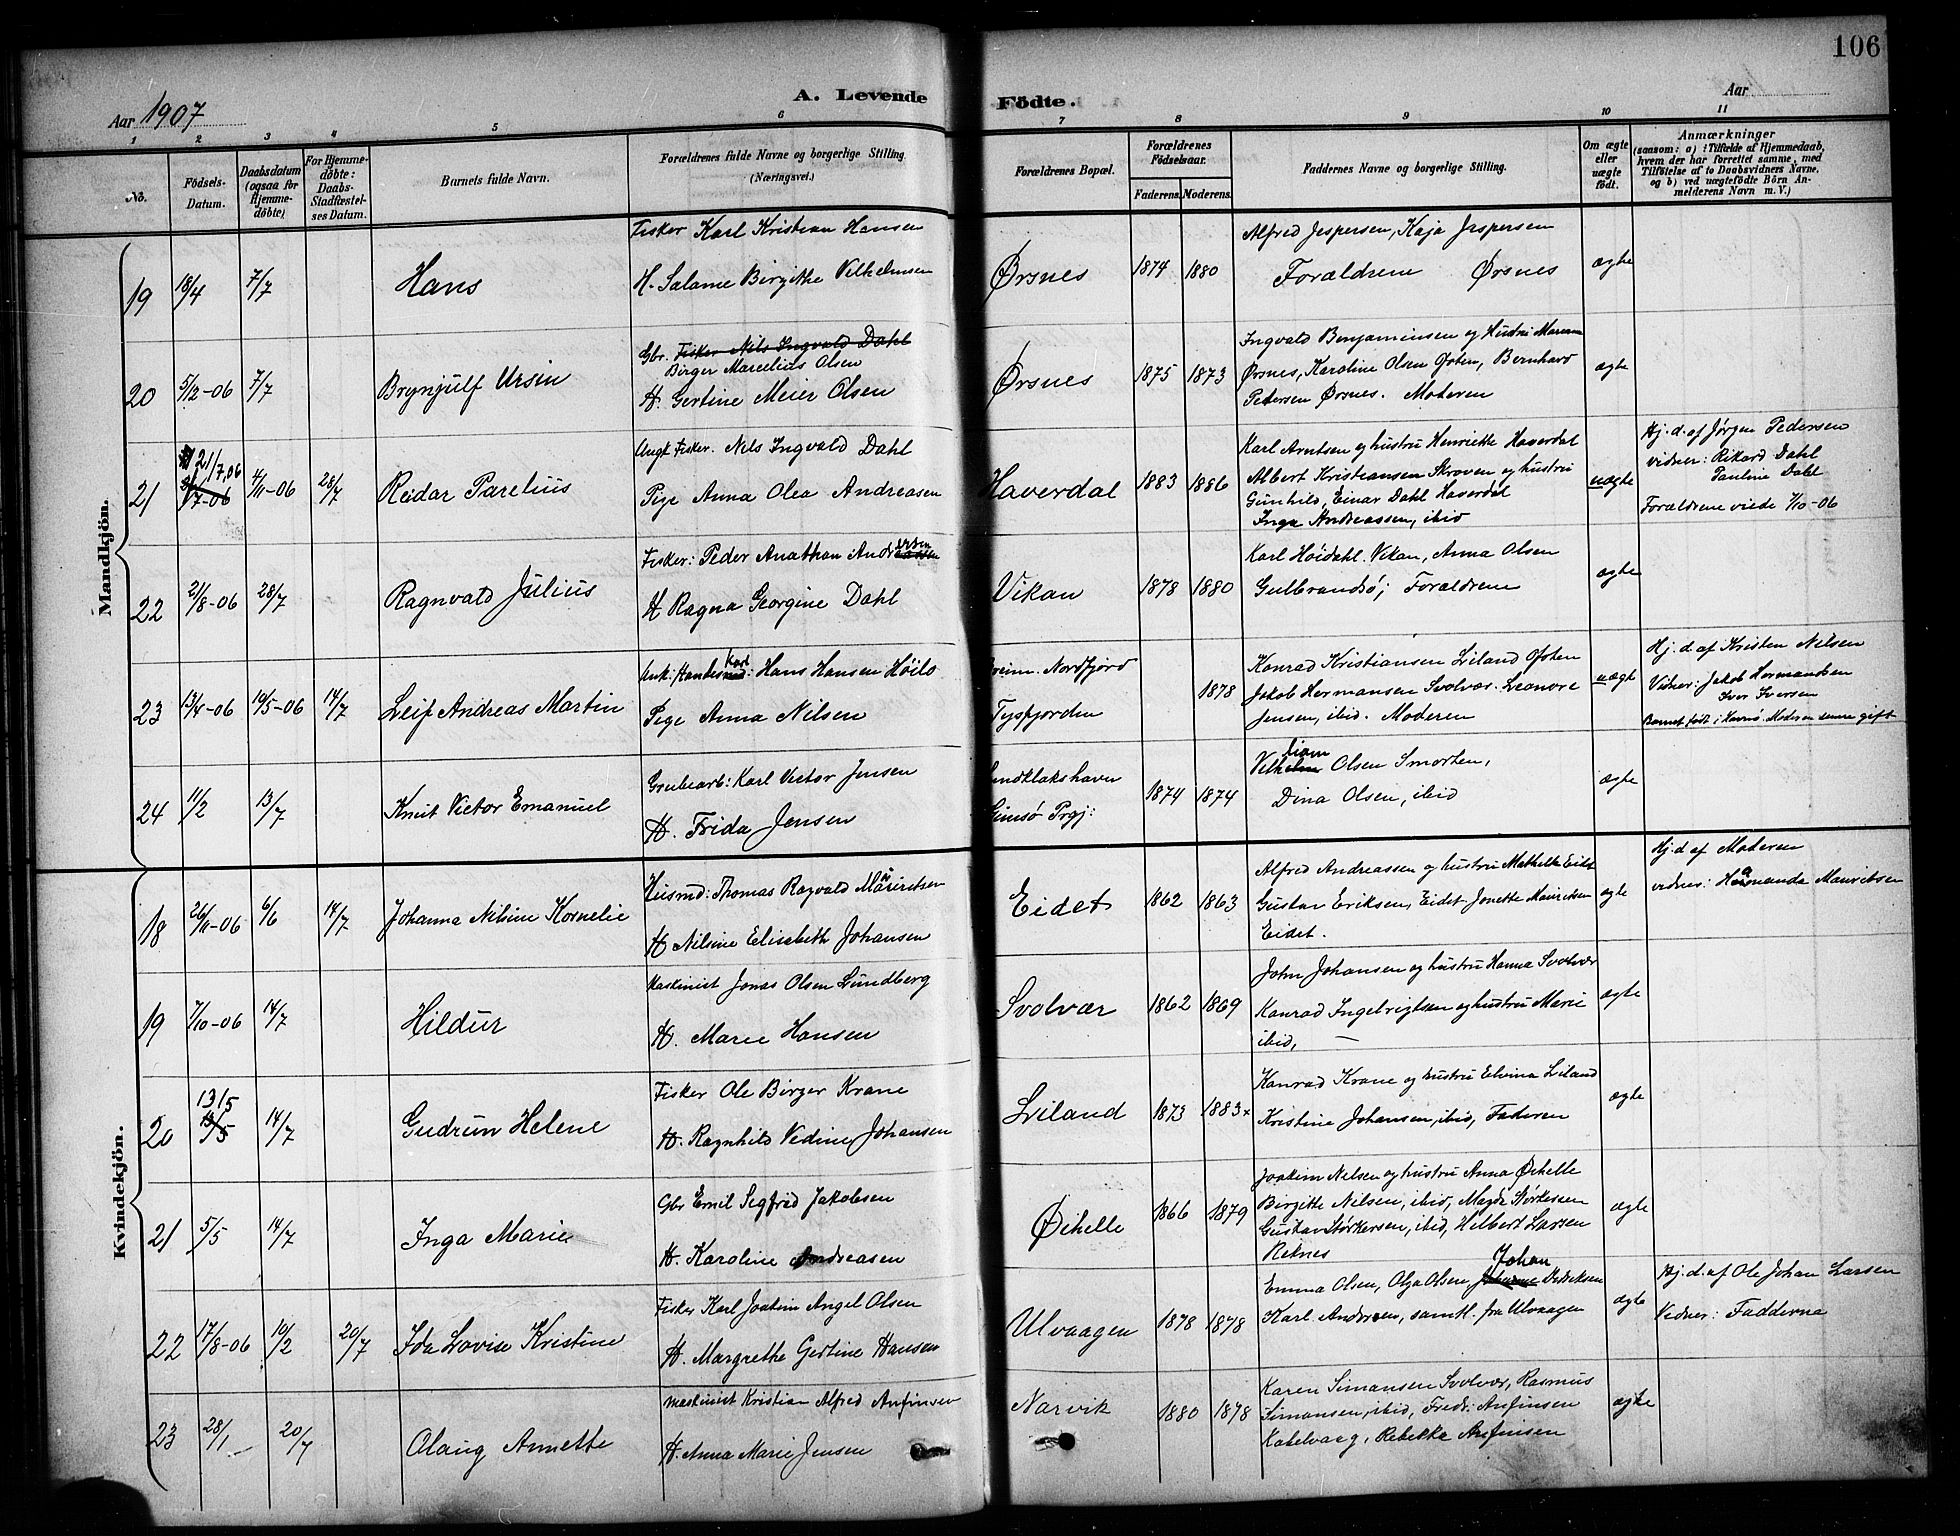 106
Aar 1907
A. Levende Födte.
Aar
1 2 3 4 5 6 7 8 9 10 11
No.
Födsels-Datum.
Daabsdatum (ogsaa for Hjemme-döbte)
For Hjemme-döbte: Daabs-Stadfæstel-ses Datum.
Barnets fulde Navn.
Forældrenes fulde Navne og borgerlige Stilling. (Næringsvei.)
Forældrenes Bopæl.
Forældrenes Födselsaar.
Faderens. Moderens.
Faddernes Navne og borgerlige Stilling.
Om ægte eller uægte födt.
Anmærkninger
(saasom: a) i Tilfælde af Hjemmedaab, hvem der har forrettet samme, med Tilföielse af to Daabsvidners Navne, og b) ved uægtefödte Börn An-melderens Navn m. V.)
Mandkjön.
19 18/4 7/7 Hans
Fisker Karl Kristian Hansen
H. Salame Birgithe Vilhelmsen
Ørsnes 1874 1880
Alfred Jespersen, Kaja Jespersen
Forældrene Ørsnes
ægte
20 5/12-06 7/7 Brynjulf Ursin
Gbr. Fisker Nils Ingvald Dahl
Birger Marcelius Olsen
H. Gertine Meier Olsen
Ørsnes 1875 1873
Ingvald Benjaminsen og Hustru
Ørsnes, Karoline Olsen Osten, Bernhard
Petersen Ørsnes. Moderen
ægte
21 21/7,06 4/11-06 28/7 Reidar Parelius
Ungk Fisker. Nils Ingvald Dahl
Pige Anna Olea Andreasen
Haverdal 1883 1886
Karl Arntsen og hustru Henrikke Haverdal
Albert Kristiansen Skroven og hustru
Gunhild, Einar Dahl Haverdal
Inga Andreassen, ibid
uægte
Hj. d. af Jørgen Pedersen
vidner: Rikard Dahl
Pauline Dahl
Forældrene viede 7/10-06
22 21/8-06 28/7 Ragnvald Julius
Fisker: Peder Anathan Andersen
H Ragna Georgine Dahl
Vikan 1878 1880
Karl Høidahl. Vikan, Anna Olsen
Gulbrandsö; Forældrene
ægte
23 13/4-06 19/5-06 14/7 Leif Andreas Martin
Hans Hansen Höilo
Pige Anna Nilsen
Nordfjord
Tysfjorden
1878
Konrad Kristiansen Liland Osten
Jakob Hermansen Svolvær. Leonore
Jensen, ibid. Moderen
uægte
Hj. d. af Kristen Nelsen
Vidner: Jakob Hermandsen
Iver Iversen
Barnet født i Moderen senere gift
24 11/2 13/7 Knut Victor Emanuel
Grubearb: Karl Victor Jensen
H. Frida Jensen
Gimsö Prgj:
1874 1874
Olsen Smorten,
Dina Olsen, ibid
ægte
Kvindekjön.
18 26/11-06 6/6 14/7 Johanna Nilsine Kornelie
Husmd: Thomas Ragvald Mauritsen
H Nilsine Elisabeth Johansen
Eidet 1862 1863
Alfred Andreassen og hustru Mathilde Eidet
Gustav Eriksen, Eidet Jonette Mauritsen
Eidet.
ægte
Hj. d af Moderen
vidner: Hamanda Mauritsen
19 7/10-06 14/7 Hildur
Maskinist Jonas Olsen Lundberg
H. Marie Hansen
Svolvær 1862 1869
John Johansen og hustru Hanna Svolvær
Konrad Ingebrigtsen og hustru Marie
ibid, —
ægte
20 13/5 14/7 Gudrun Helene
Fisker Ole Birger Krane
H. Ragnhild Vedine Johansen
Liland 1873 1883x
Konrad Krane og hustru Elvina Liland
Kristine Johansen, ibid, Faderen
ægte
21 5/5 14/7 Inga Marie
Gbr Emil Segfred Jakobsen
H. Karoline Andreasen
Øihelle 1866 1879
Joakim Nilsen og hustru Anna Øihelle
Birgitte Nilsen, ibid, Magda Størkersen
Gustav Størkersen, ibid, Hilbert Larsen
Reknes
ægte
22 17/8-06 10/2 20/7 Ida Lovise Kristine
Fisker Karl Joakim Angel Olsen
H. Margrethe Gertine Hansen
Ulvaagen 1878 1878
Emma Olsen, Olga Olsen, Johan Didriksen
Karl Andersen, samtl. fra Ulvaagen
ægte
Hj. d. af Ole Johan Larsen
Vidner: Fadderne
23 28/1 20/7 Olaug Annette
Maskinist Kristian Alfred Anfinsen
H. Anna Marie Jensen
Narvik 1880 1878
Karen Simonsen Svolvær, Rasmus
Simonsen, ibid, Fredr: Anfinsen
Kabelvaag, Rebekke Anfinsen
ægte